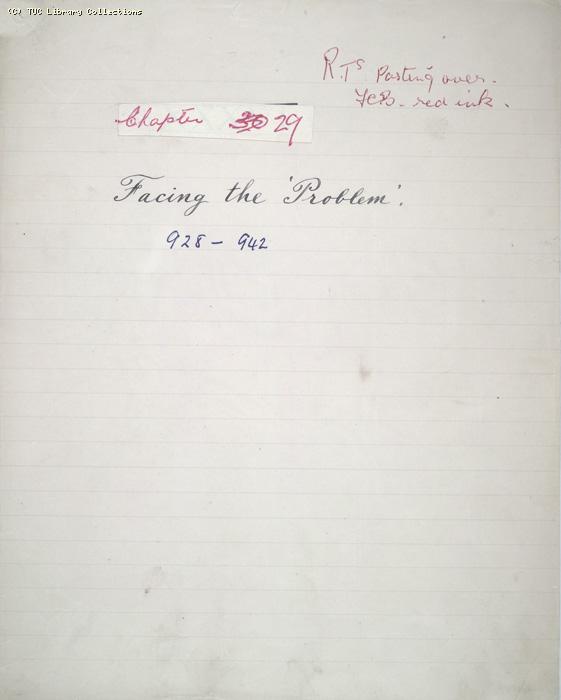 (C) TUC Library Collections
R.Ts Pasting over.
FCB. red ink.
Chapter 30 29
Facing the 'Problem'.
928 - 942